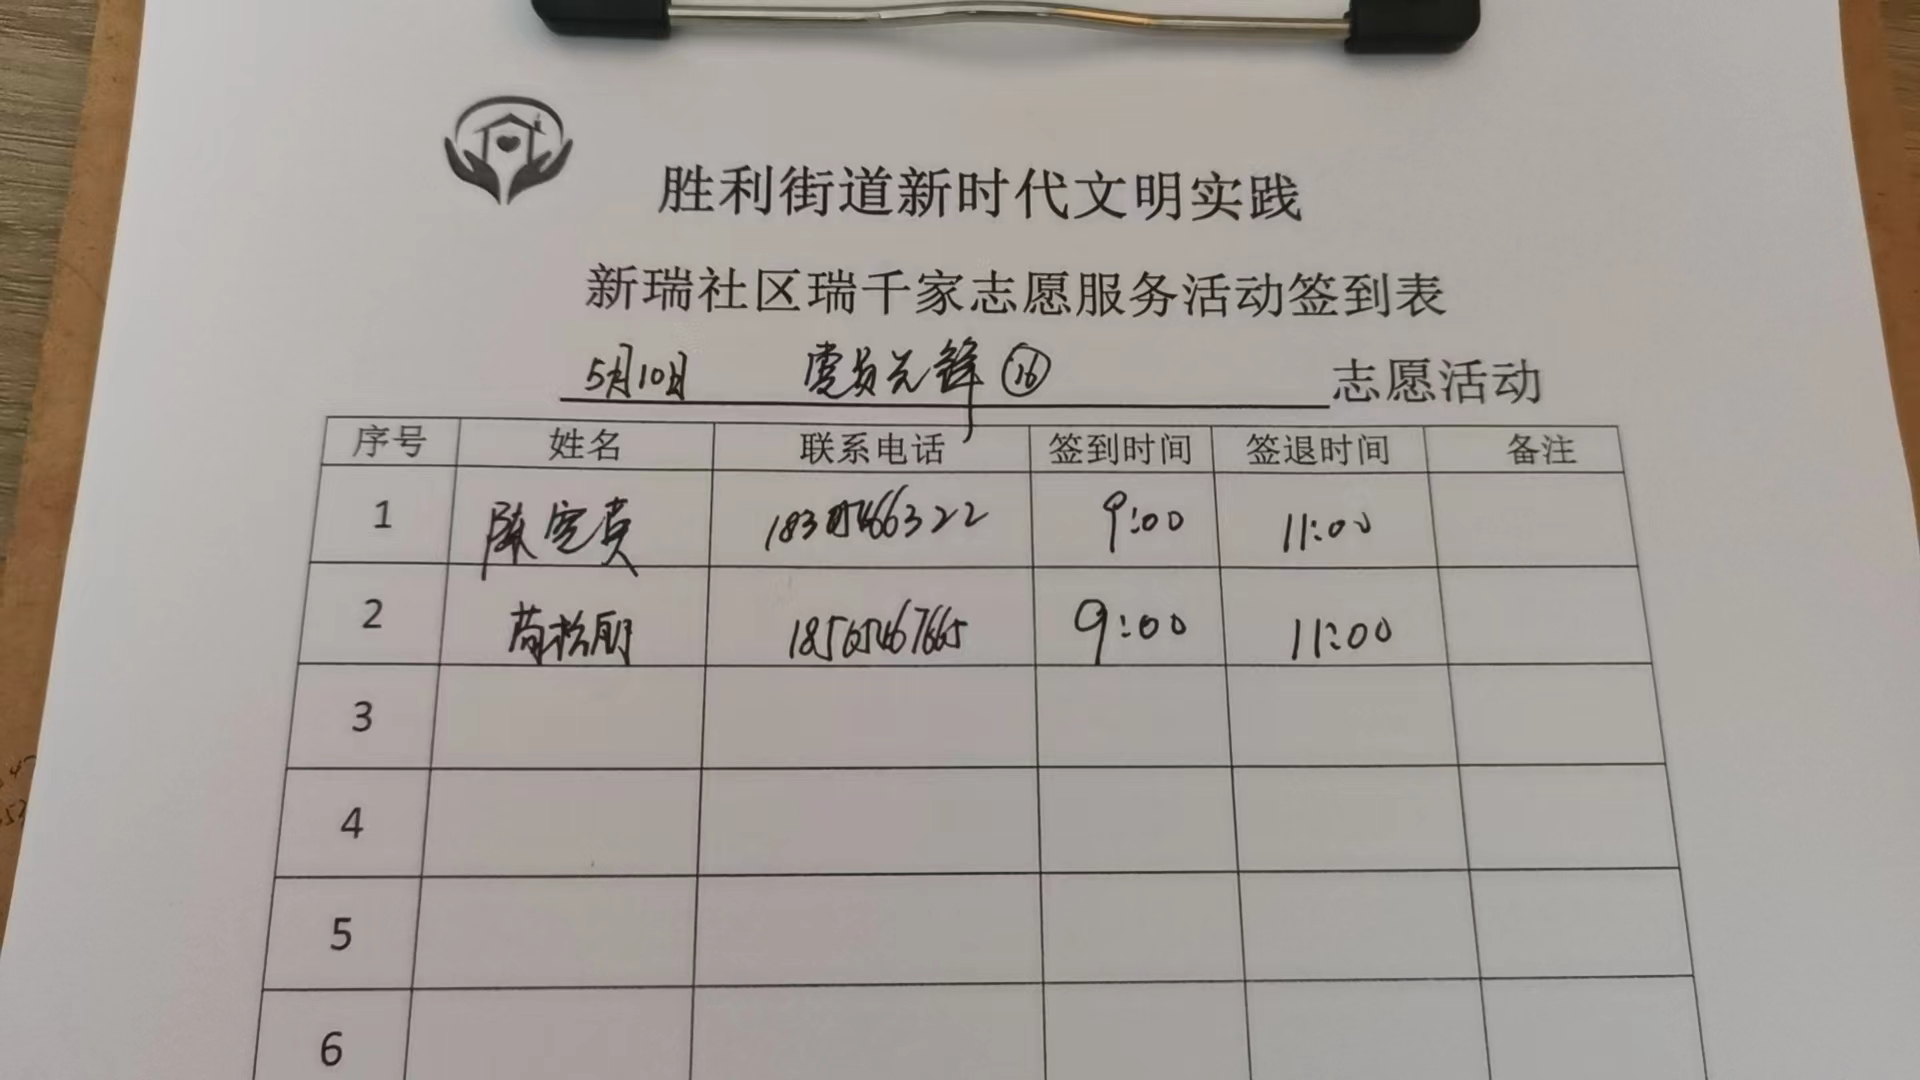 胜利街道新时代文明实践
新瑞社区瑞千家志愿服务活动签到表
5月10日 党员先锋⑯ 志愿活动
序号 姓名 联系电话 签到时间 签退时间 备注
1 陈 9:00 11:00
2 苟松朋 18565467665 9:00 11:00
3
4
5
6